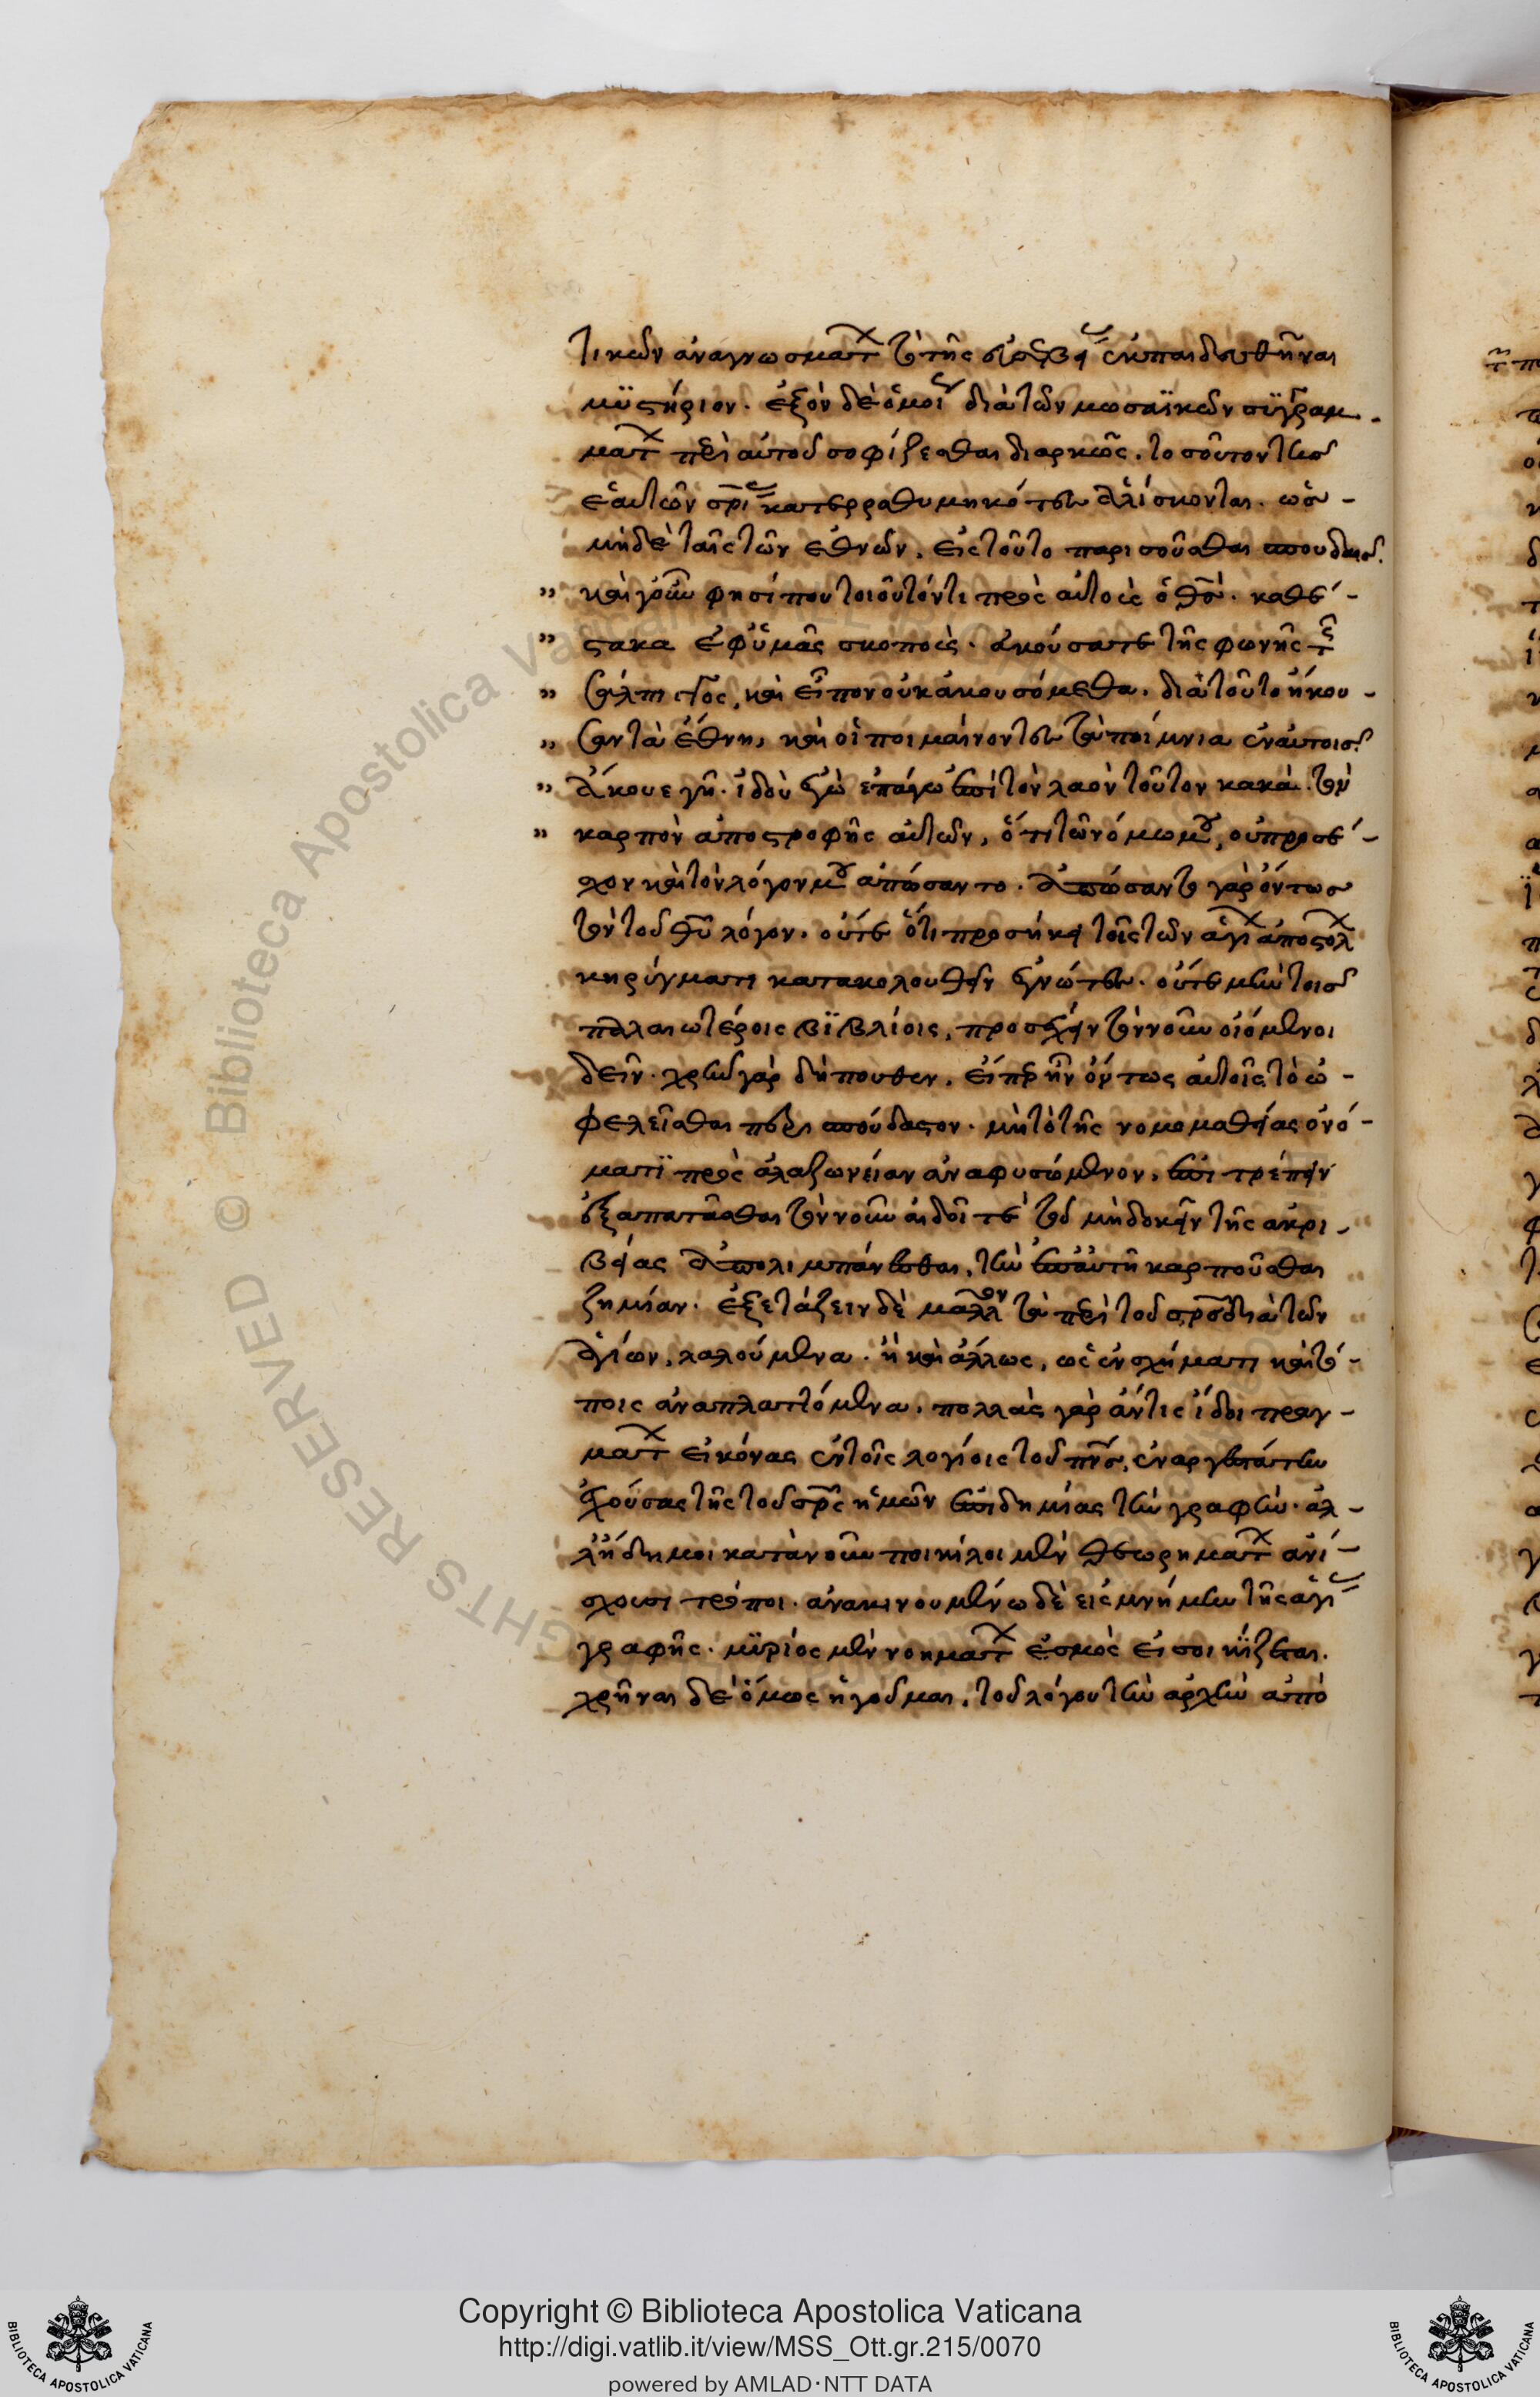 τικῶν ἀναγνωσμάτων τὸ τῆς εὐσεβείας ἐκπαιδευθῆναι
μυστήριον. ἐξὸν δὲ ὁμοίως διὰ τῶν μωσαϊκῶν συγγραμ-
μάτων περὶ αὐτοῦ σοφίζεσθαι διαρκῶς. τοσοῦτον τῆς
ἑαυτῶν σωτηρίας κατερραθυμηκότες ἁλίσκονται. ὡς
μηδὲ ταῖς τῶν ἐθνῶν, εἰς τοῦτο παρισοῦσθαι σπουδαῖς.
" καὶ γοῦν φησί που τοιοῦτόν τι πρὸς αὐτοὺς ὁ θεός. καθέ-
" στακα ἐφ' ὑμᾶς σκοποὺς. ἀκούσατε τῆς φωνῆς τῆς
" σάλπιγγος, καὶ εἶπον οὐκ ἀκουσόμεθα. διὰ τοῦτο ἤκου-
" σαν τὰ ἔθνη, καὶ οἱ ποιμαίνοντες τὰ ποίμνια ἐν αὐτοῖς.
" ἄκουε γῆ. ἰδοὺ ἐγὼ ἐπάγω ἐπὶ τὸν λαὸν τοῦτον κακὰ. τὸν
" καρπὸν ἀποστροφῆς αὐτῶν, ὅτι τῶ νόμω μου, οὐ προσέ-
χον καὶ τὸν λόγον μου ἀπώσαντο. ἀπώσαντο γὰρ ὄντως
τὸν τοῦ θεοῦ λόγον. οὔτε ὅτι προσήκει τοῖς τῶν ἁγίων ἀποστόλων
κηρύγμασι κατακολουθεῖν ἐγνώτες. οὔτε μὴν τοῖς
παλαιωτέροις βιβλίοις, προσέχειν τὸν νοῦν οἰόμενοι
δεῖν. χρῆν γὰρ δήπουθεν, εἴπερ ἦν ὄντως αὐτοῖς τὸ ὠ-
φελεῖσθαι περισπούδαστον. μὴ τὸ τῆς νομομαθείας ὀνό-
ματι πρὸς ἀλαζωνείαν ἀναφυσώμενον, ἐπιτρέπειν
ἐξαπατᾶσθαι τὸν νοῦν αἰδοῖ τε τοῦ μὴ δοκεῖν τῆς ἀκρι-
βείας ἀπολιμπάνεσθαι, τὴν ἐπ' αὐτῆ καρποῦσθαι
ζημίαν. ἐξετάζειν δὲ μᾶλλον τὰ περὶ τοῦ σωτῆρος διὰ τῶν
ἁγίων, λαλούμενα. ἢ καὶ ἄλλως, ὡς ἐν σχήματι καὶ τύ-
ποις ἀναπλαττόμενα, πολλὰς γὰρ ἄν τις ἴδοι πραγ-
μάτων εἰκόνας ἐν τοῖς λογίοις τοῦ πνεύματος, ἐναργεστάτην
ἐχούσας τῆς τοῦ σωτῆρος ἡμῶν ἐπιδημίας τὴν γραφὴν. ἀλ-
λ' ἤδη μοι κατὰ νοῦν ποικίλοι μὲν θεωρημάτων ἀνί-
σχουσι τρόποι. ἀνακινουμένω δὲ εἰς μνήμην τῆς ἁγίας
γραφῆς. μυρίος μὲν νοημάτων ἑσμὸς εἰσοικίζεται.
χρῆναι δὲ ὅμως ἡγοῦμαι, τοῦ λόγου τὴν ἀρχὴν ἀπὸ
Copyright © Biblioteca Apostolica Vaticana
http://digi.vatlib.it/view/MSS_Ott.gr.215/0070
powered by AMLAD·NTT DATA